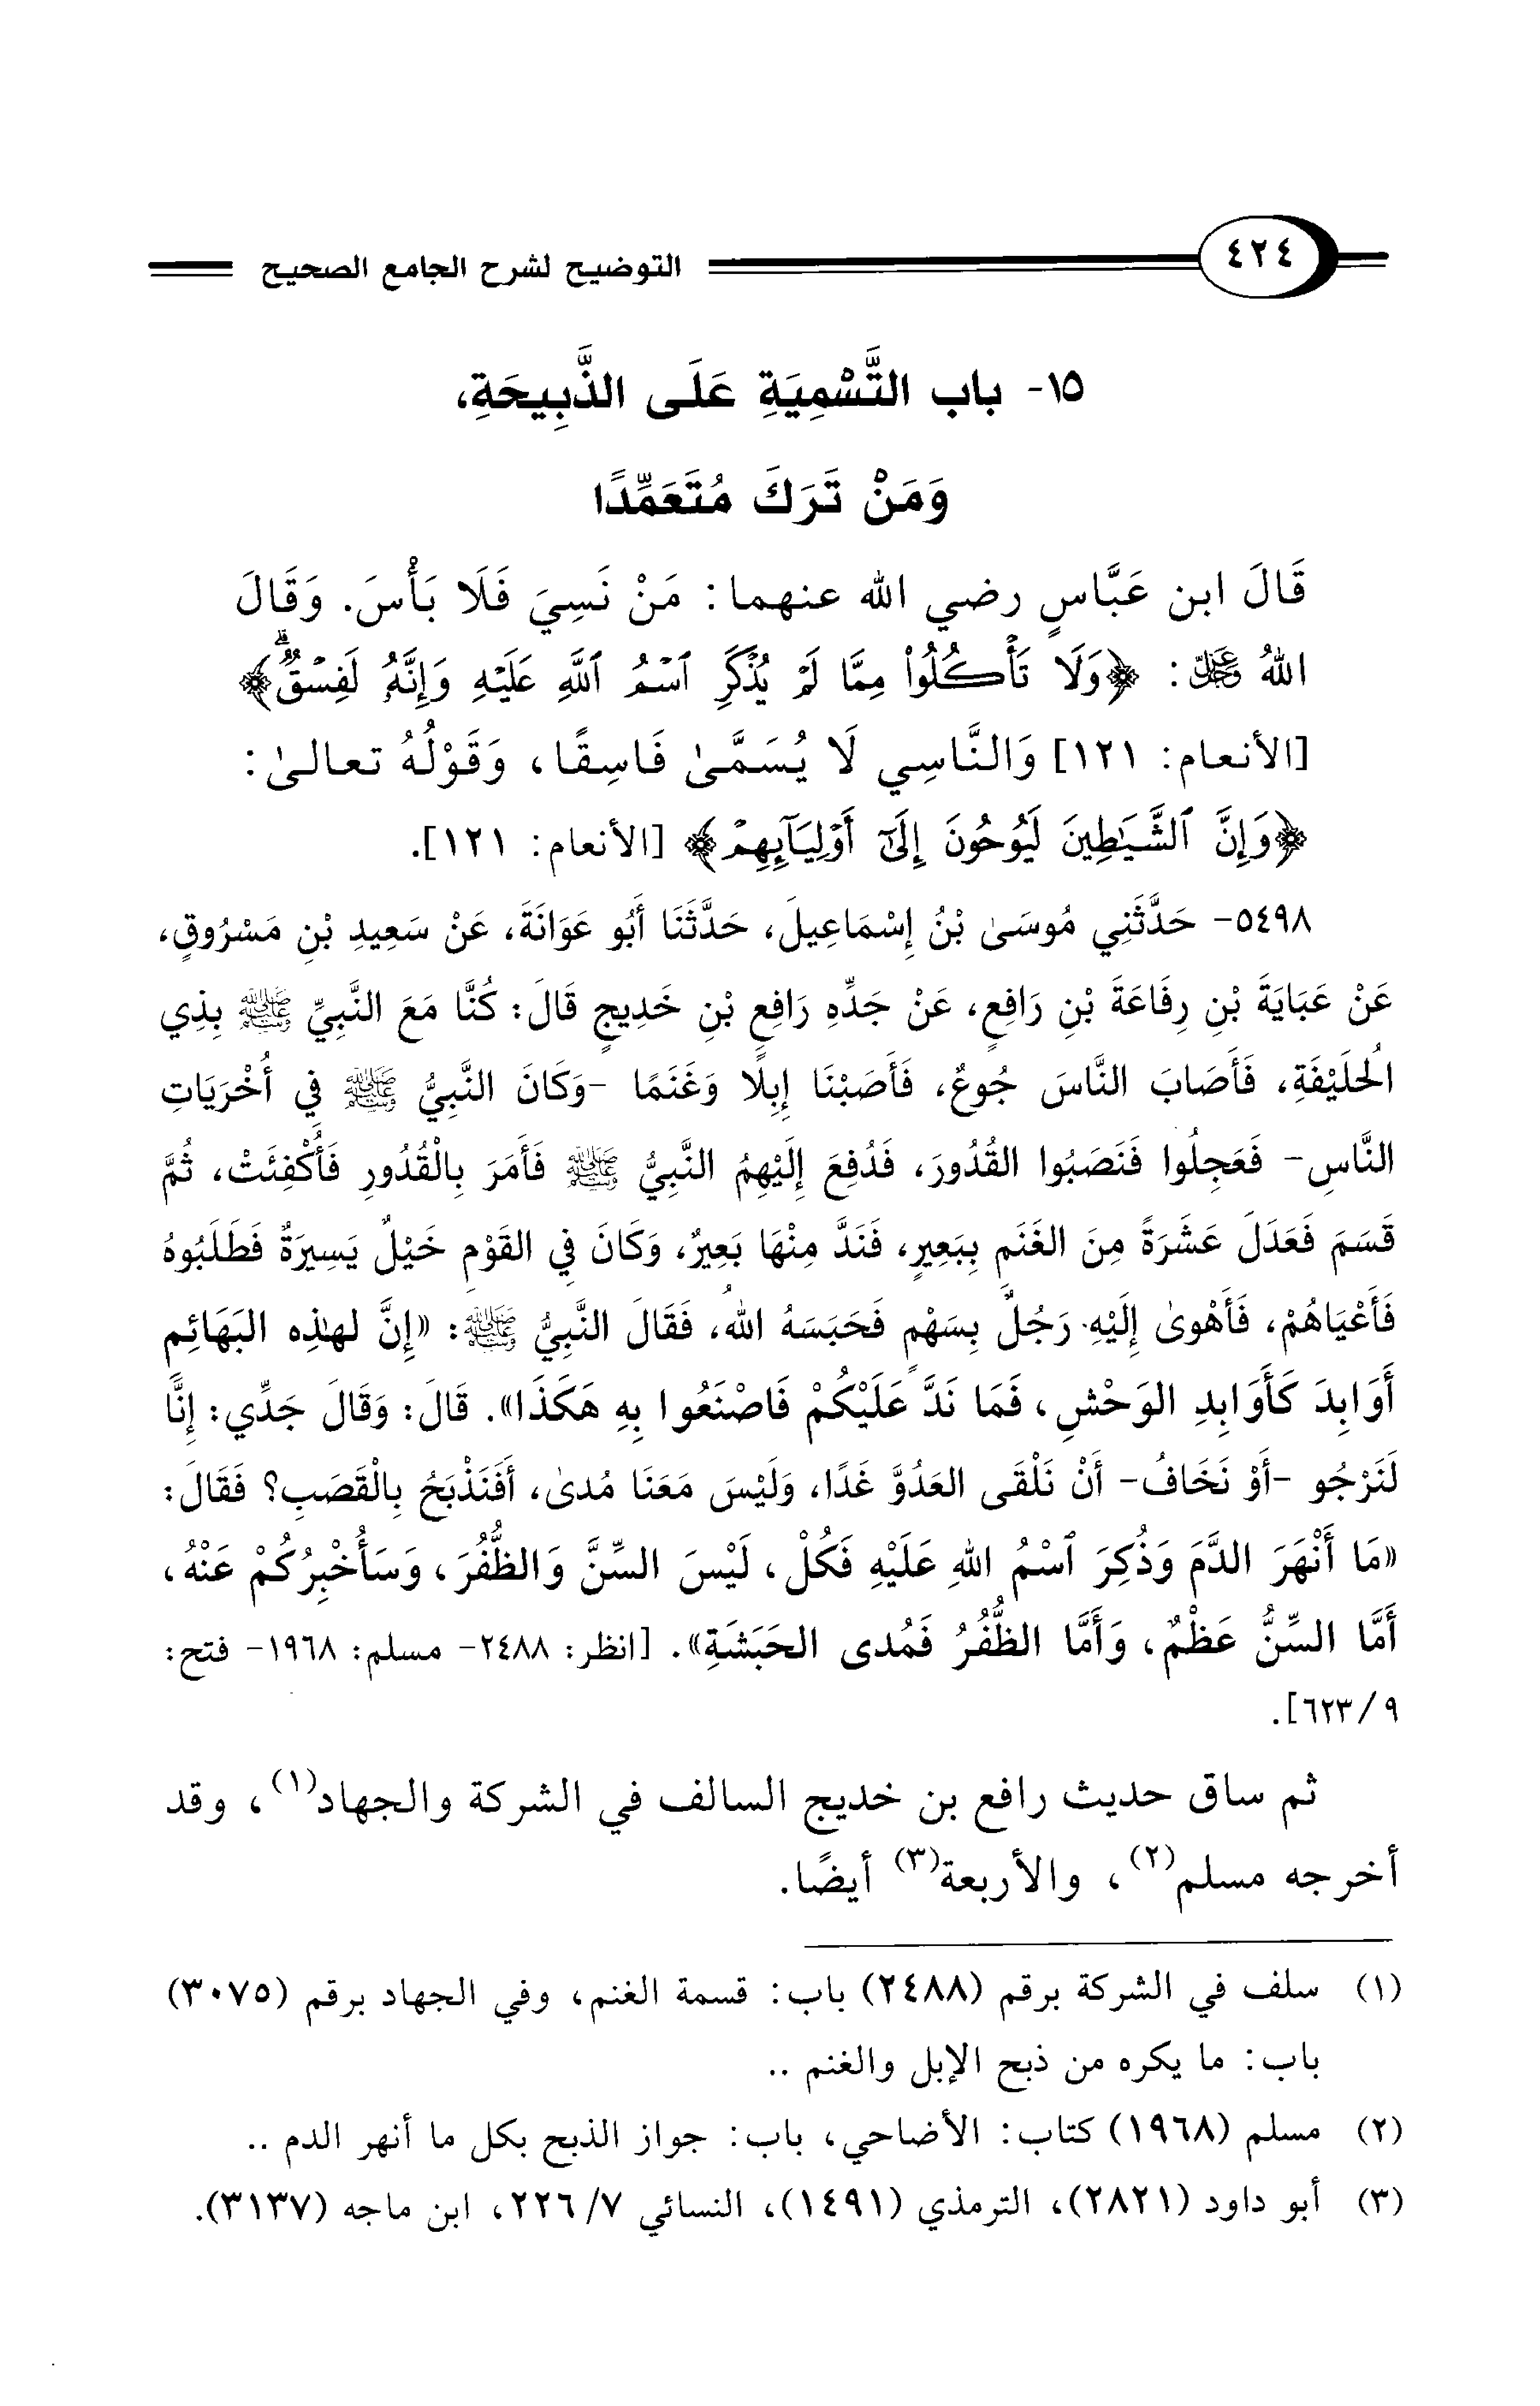 ٤٢٤
التوضيح لشرح الجامع الصحيح
١٥- باب التَّسْمِيَةِ عَلَى الذَّبِيحَةِ،
وَمَنْ تَرَكَ مُتَعَمِّدًا
قَالَ ابن عَبَّاسٍ رضي الله عنهما: مَنْ نَسِيَ فَلَا بَأْسَ. وَقَالَ
اللهُ ﷿: ﴿وَلَا تَأْكُلُوا۟ مِمَّا لَمْ يُذْكَرِ ٱسْمُ ٱللَّهِ عَلَيْهِ وَإِنَّهُۥ لَفِسْقٌ ۗ﴾
[الأنعام: ١٢١] وَالنَّاسِي لَا يُسَمَّىٰ فَاسِقًا، وَقَوْلُهُ تعالىٰ:
﴿وَإِنَّ ٱلشَّيَٰطِينَ لَيُوحُونَ إِلَىٰٓ أَوْلِيَآئِهِمْ﴾ [الأنعام: ١٢١].
٥٤٩٨- حَدَّثَنِي مُوسَىٰ بْنُ إِسْمَاعِيلَ، حَدَّثَنَا أَبُو عَوَانَةَ، عَنْ سَعِيدِ بْنِ مَسْرُوقٍ،
عَنْ عَبَايَةَ بْنِ رِفَاعَةَ بْنِ رَافِعٍ، عَنْ جَدِّهِ رَافِعِ بْنِ خَدِيجٍ قَالَ: كُنَّا مَعَ النَّبِيِّ ﷺ بِذِي
الُحلَيْفَةِ، فَأَصَابَ النَّاسَ جُوعٌ، فَأَصَبْنَا إِبِلًا وَغَنَمًا -وَكَانَ النَّبِيُّ ﷺ فِي أُخْرَيَاتِ
النَّاسِ- فَعَجِلُوا فَنَصَبُوا القُدُورَ، فَدُفِعَ إِلَيْهِمُ النَّبِيُّ ﷺ فَأَمَرَ بِالْقُدُورِ فَأُكْفِئَتْ، ثُمَّ
قَسَمَ فَعَدَلَ عَشَرَةً مِنَ الغَنَمِ بِبَعِيرٍ، فَنَدَّ مِنْهَا بَعِيرٌ، وَكَانَ فِي القَوْمِ خَيْلٌ يَسِيرَةٌ فَطَلَبُوهُ
فَأَعْيَاهُمْ، فَأَهْوىٰ إِلَيْهِ رَجُلٌ بِسَهْمٍ فَحَبَسَهُ اللهُ، فَقَالَ النَّبِيُّ ﷺ: «إِنَّ لهٰذِه البَهَائِمِ
أَوَابِدَ كَأَوَابِدِ الوَحْشِ، فَمَا نَدَّ عَلَيْكُمْ فَاصْنَعُوا بِهِ هَكَذَا». قَالَ: وَقَالَ جَدِّي: إِنَّا
لَنَرْجُو -أَوْ نَخَافُ- أَنْ نَلْقَى العَدُوَّ غَدًا، وَلَيْسَ مَعَنَا مُدىٰ، أَفَنَذْبَحُ بِالْقَصَبِ؟ فَقَالَ:
«مَا أَنْهَرَ الدَّمَ وَذُكِرَ ٱسْمُ اللهِ عَلَيْهِ فَكُلْ، لَيْسَ السِّنَّ وَالظُّفُرَ، وَسَأُخْبِرُكُمْ عَنْهُ،
أَمَّا السِّنُّ عَظْمٌ، وَأَمَّا الظُّفُرُ فَمُدى الحَبَشَةِ». [انظر: ٢٤٨٨- مسلم: ١٩٦٨- فتح:
٩/ ٦٢٣].
ثم ساق حديث رافع بن خديج السالف في الشركة والجهاد(١)، وقد
أخرجه مسلم(٢)، والأربعة(٣) أيضًا.
(١) سلف في الشركة برقم (٢٤٨٨) باب: قسمة الغنم، وفي الجهاد برقم (٣٠٧٥)
باب: ما يكره من ذبح الإبل والغنم ..
(٢) مسلم (١٩٦٨) كتاب: الأضاحي، باب: جواز الذبح بكل ما أنهر الدم ..
(٣) أبو داود (٢٨٢١)، الترمذي (١٤٩١)، النسائي ٧/ ٢٢٦، ابن ماجه (٣١٣٧).